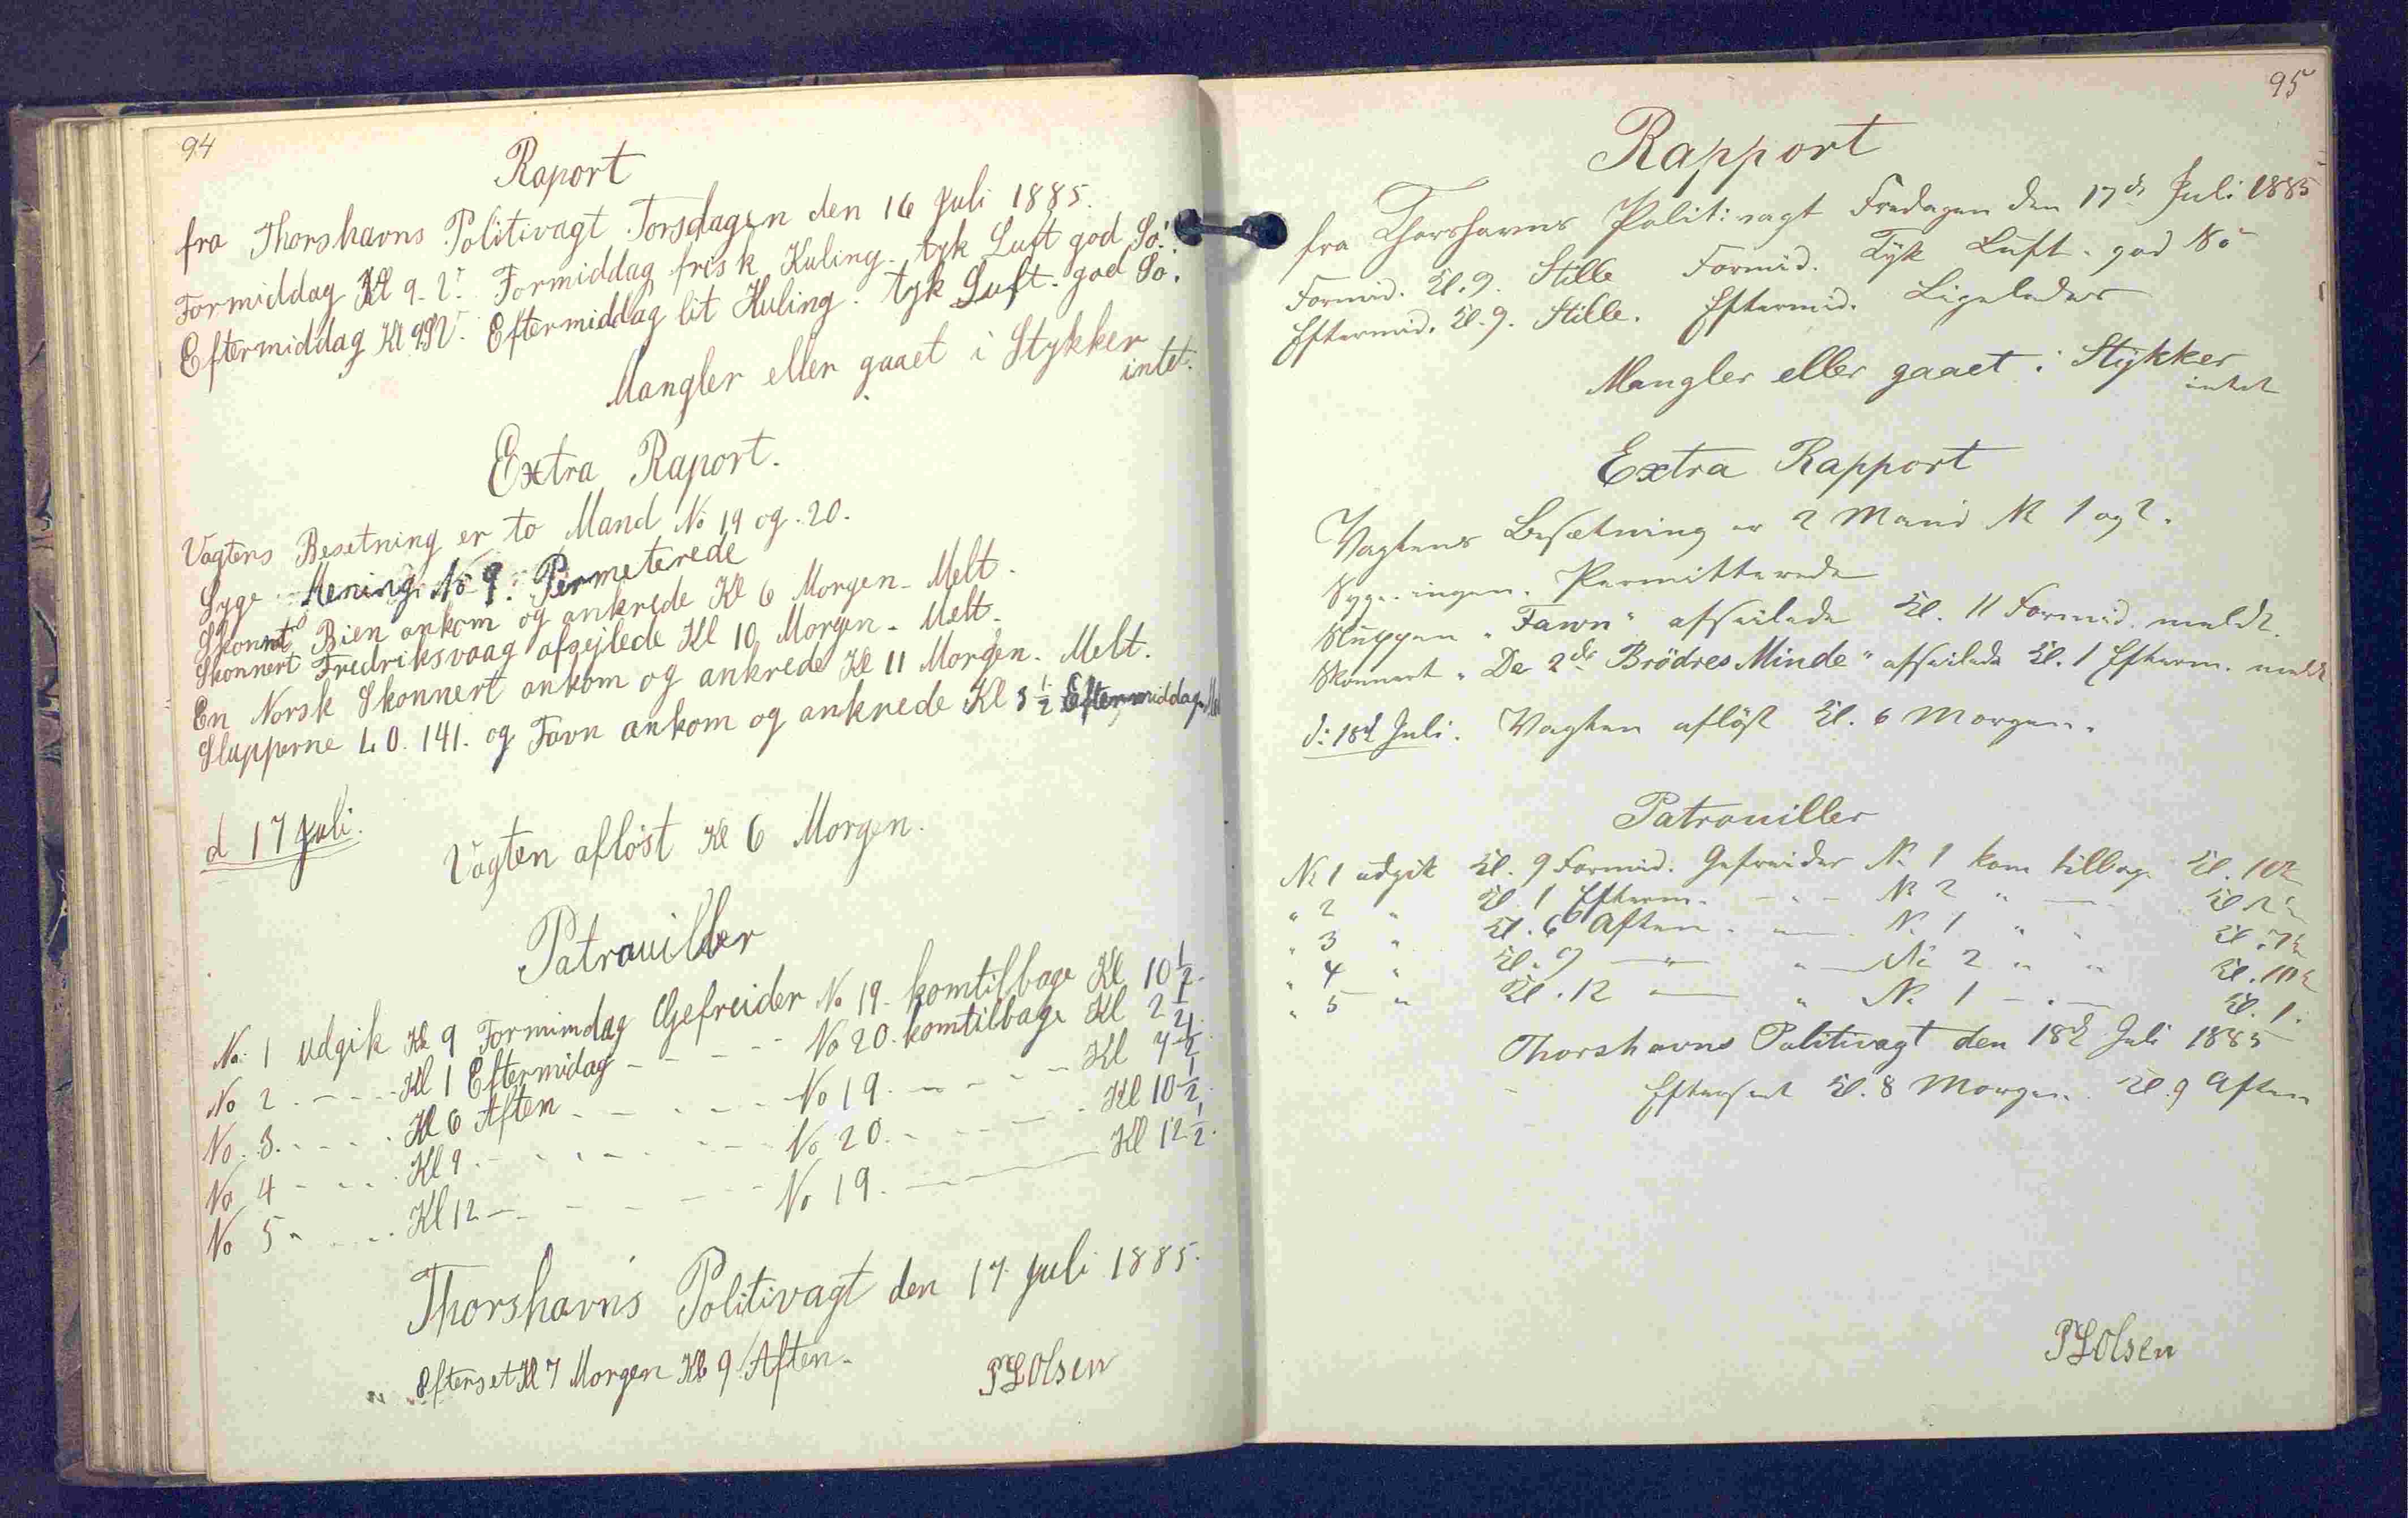 94
Raport
fra Thorshavns Politivagt Torsdagen den 16 Juli 1885.
Formiddag Kl 9. V. Formiddag frisk Kuling. tyk Luft god Sø.
Eftermiddag Kl 9 SV. Eftermiddag lit Kuling. tyk Luft. god Sø.
Mangler eller gaaet i Stykker
intet.
Extra Raport.
Vagtens Besetning er to Mand No 19 og. 20.
Syge Mening No 9. Permeterede
Skonnt Bien ankom og ankrede Kl 6 Morgen - Melt.
Skonnert Fredriksvaag afsejlede Kl 10 Morgen - Melt.
En Norsk Skonnert ankom og ankrede Kl 11 Morgen. Melt.
Slupperne L.O. 141. og Favn ankom og ankrede Kl 3 1/2 Eftermiddag.
d 17 Juli.
Vagten afløst Kl 6 Morgen.
Patrouiller
No. 1 udgik Kl 9 Formimdag Gefreider No 19. komtilbage Kl 10 1/2.
No 2. - - - Kl 1 Eftermidag - - - - No 20. komtilbage Kl 2 1/2
No. 3. - - - Kl 6 Aften - - - - No 19. - - - - Kl 7 1/2
No 4 - - - Kl 9. - - - - No 20. - - - - Kl 10 1/2
No 5 - - - Kl 12 - - - - No 19. - - - Kl 12 1/2.
Thorshavns Politivagt den 17 Juli 1885.
Efterset Kl 7 Morgen Kl 9 Aften.
PLOlsen
95
Rapport
fra Thorshavns Politivagt Fredagen den 17de Juli 1885
Formid. Kl. 9. Stille Formid. Tyk Luft. god Sø
Eftermid. Kl. 9. Stille. Eftermid. Ligeledes
Mangler eller gaaet i Stykker
intet
Extra Rapport
Vagtens Besætning er 2 Mand No 1 og 2.
Syge ingen. Permitterede
Sluppen "Fawn" afseilede Kl. 11 Formid. meldt.
Skonnert "De 2de Brödres Minde" afseilede Kl. 1 Efterm. meldt
d: 18d Juli. Vagten aflöst Kl. 6 Morgen.
Patrouiller
No 1 udgik Kl. 9 Formid. Gefreider No 1 kom tilbage Kl. 10 1/2
" 2 " Kl. 1 Efterm. - - - No 2 " — Kl. 2 1/2
" 3 " Kl. 6 Aften. — No 1 " " Kl. 7 1/2
" 4 " Kl. 9 — " " — No 2 " " Kl. 10 1/2
" 5 " Kl. 12 — " No 1 - . - Kl. 1.
Thorshavns Politivagt den 18d Juli 1885
Efterset Kl. 8 Morgen. Kl. 9 Aften
PLOlsen